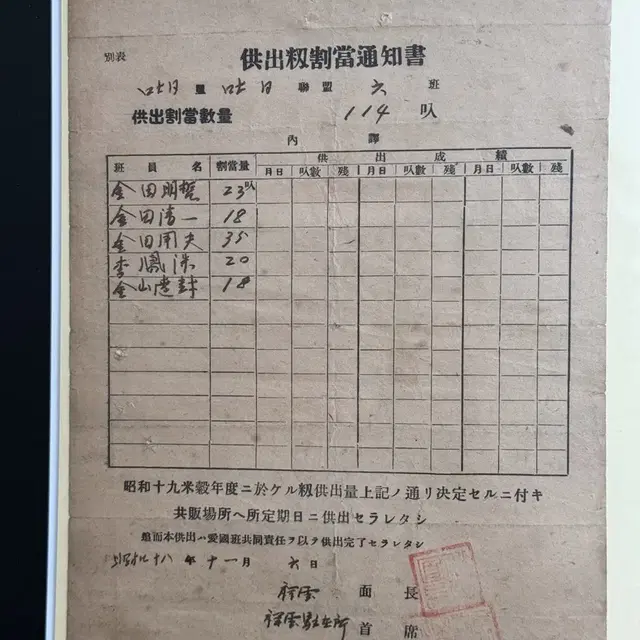 別表
供出籾割當通知書
聯盟 六 班
供出割當數量 114 叺
內譯
班員名 割當量 供出成績
月日 叺數 殘 月日 叺數 殘 月日 叺數 殘
金田明哲 23叺
金田清一 18
金田用夫 35
李鳳洙 20
金山 18
昭和十九米穀年度ニ於ケル籾供出量上記ノ通リ決定セルニ付キ
共販場所ヘ所定期日ニ供出セラレタシ
追而本供出ハ愛國班共同責任ヲ以テ供出完了セラレタシ
昭和十八年十一月六日
祥雲面長
祥雲駐在所首席